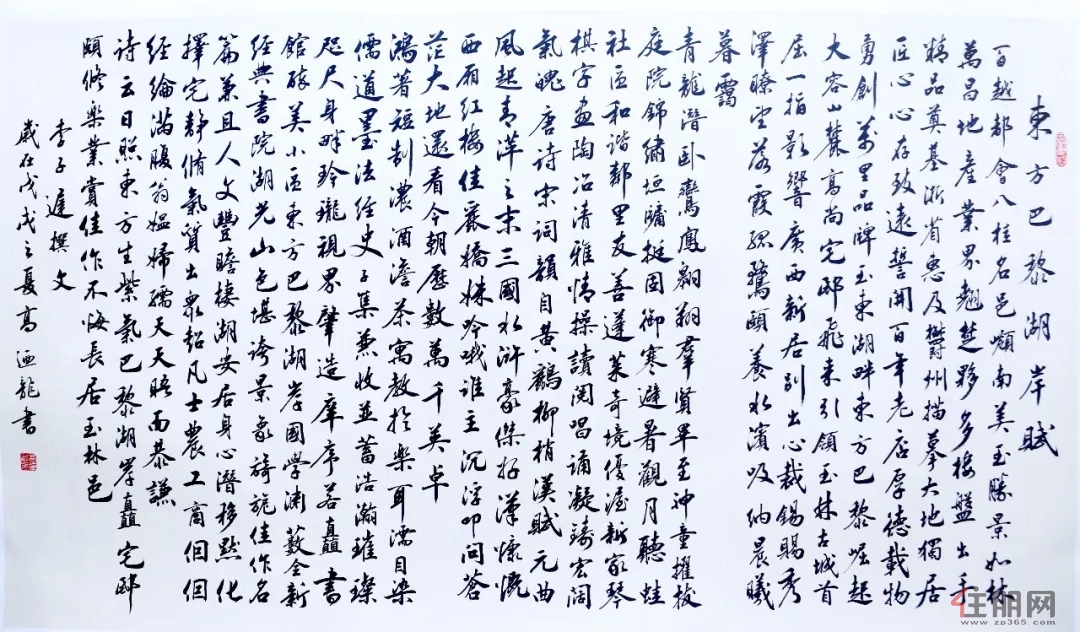 東方巴黎湖岸賦
百越都會八桂名邑嶺南美玉勝景如林
萬昌地產業界翹楚夥多樓盤出手
精品奠基浙省惠及欝州描摹大地獨居
匠心心存致遠誓開百年老店厚德載物
勇創萬里品牌玉東湖畔東方巴黎崛起
大容山麓高尚宅邸飛來引領玉林古城首
屈一指影響廣西新居別出心裁錫賜秀
澤瞭望落霞孤鶩頤養水濱吸納晨曦
暮靄
青龍潛卧鸞鳳翱翔羣賢畢至神童擢拔
庭院錦繡垣牖挺固御寒避暑觀月聽蛙
社區和諧鄰里友善蓬萊奇境優渥新家琴
棋字畫陶冶清雅情操讀閱唱誦凝鑄宏闊
氣魄唐詩宋詞韻自黃鶴柳梢漢賦元曲
風起青萍之末三國水滸豪傑好漢慷慨
西廂紅樓佳麗嬌姝吟哦誰主沉浮叩問蒼
茫大地還看今朝歷數萬千英卓
鴻著短制濃酒澹茶寓教於樂耳濡目染
儒道墨法經史子集兼收並蓄浩瀚璀璨
咫尺身畔玲瓏視界肇造庠序若矗書
館醉美小區東方巴黎湖岸國學淵藪全新
經典書院湖光山色堪誇景象旖旎佳作名
篇兼且人文豐贍棲湖安居身心潛移默化
擇宅靜脩氣質出眾超凡士農工商個個
經綸滿腹翁媼婦孺天天晤面恭謙
詩云日照東方生紫氣巴黎湖岸矗宅邸
頤脩樂業賞佳作不悔長居玉林邑
李子遲撰文
歲在戊戌之夏高遜龍書
住朋网
www.zp365.com